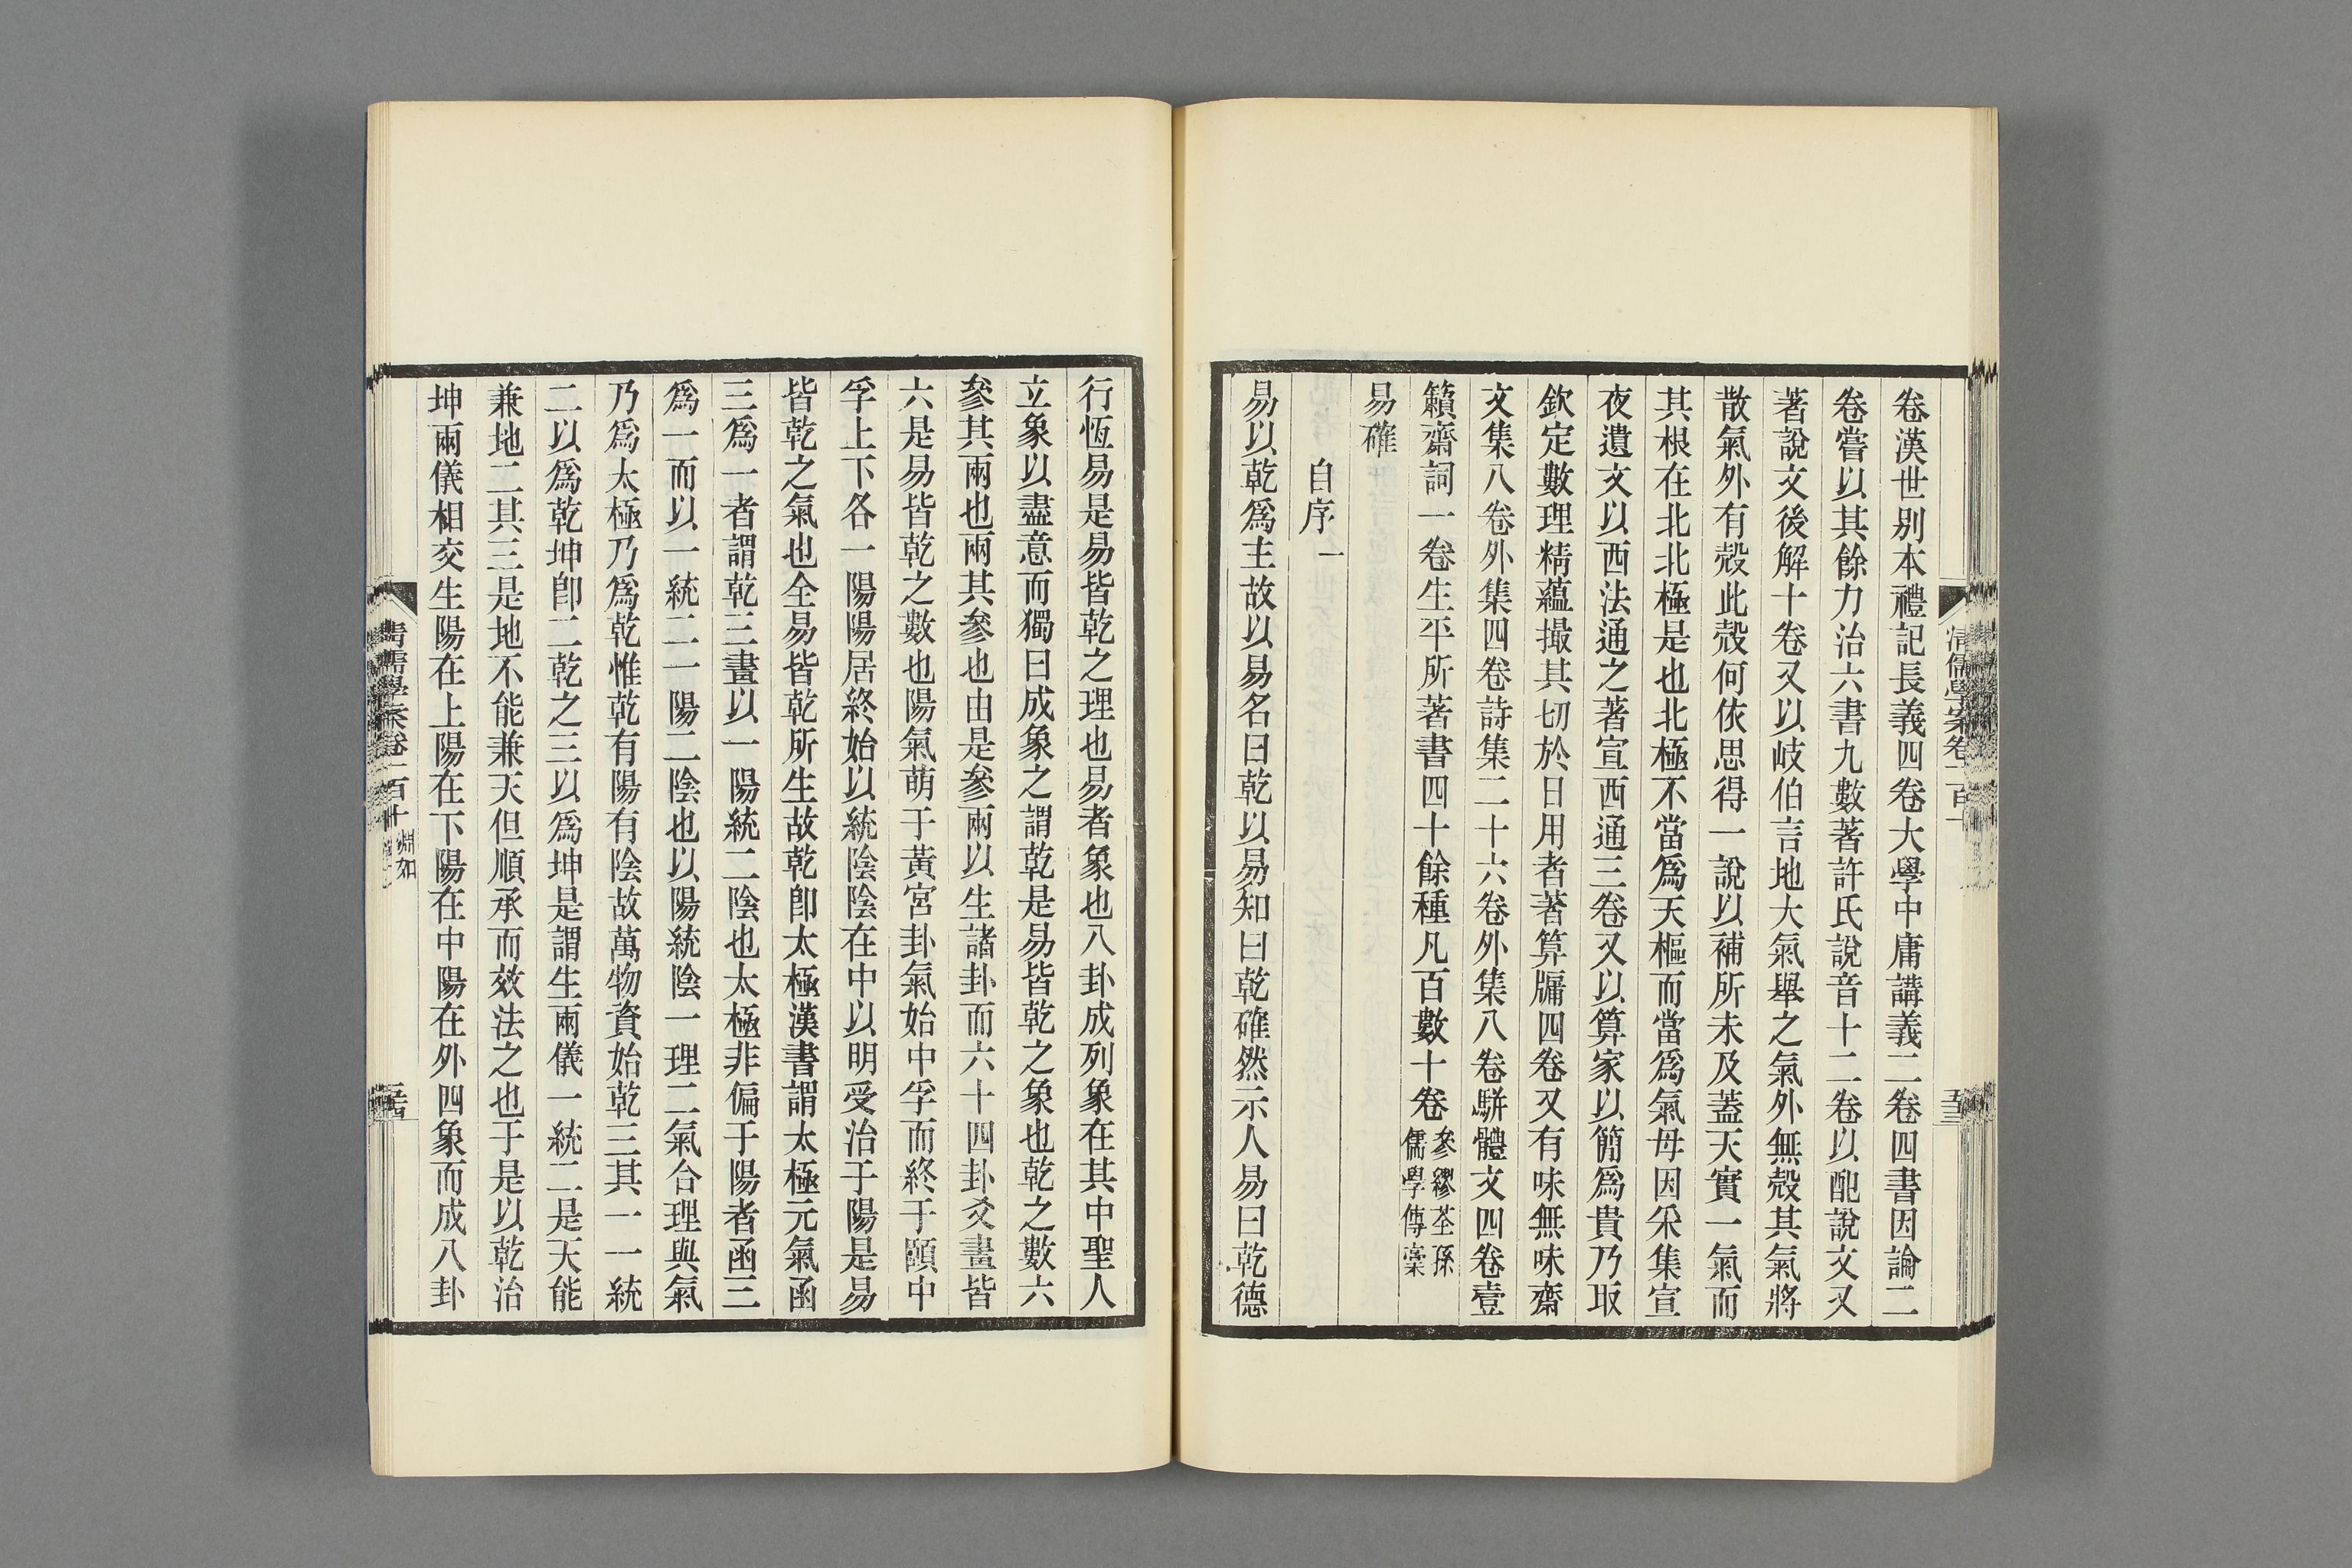 卷漢世別本禮記長義四卷大學中庸講義二卷四書因論二
卷嘗以其餘力治六書九數著許氏說音十二卷以配說文又
著說文後解十卷又以岐伯言地大氣舉之氣外無殼其氣將
散氣外有殼此殼何依思得一說以補所未及蓋天實一氣而
其根在北北極是也北極不當爲天樞而當爲氣母因采集宣
夜遺文以西法通之著宣西通三卷又以算家以簡爲貴乃取
欽定數理精蘊撮其切於日用者著算牖四卷又有味無味齋
文集八卷外集四卷詩集二十六卷外集八卷駢體文四卷壹
籟齋詞一卷生平所著書四十餘種凡百數十卷
參繆荃孫
儒學傳稾
易確
自序一
易以乾爲主故以易名曰乾以易知曰乾確然示人易曰乾德
行恆易是易皆乾之理也易者象也八卦成列象在其中聖人
立象以盡意而獨曰成象之謂乾是易皆乾之象也乾之數六
參其兩也兩其參也由是參兩以生諸卦而六十四卦爻畫皆
六是易皆乾之數也陽氣萌于黃宮卦氣始中孚而終于頤中
孚上下各一陽陽居終始以統陰陰在中以明受治于陽是易
皆乾之氣也全易皆乾所生故乾卽太極漢書謂太極元氣函
三爲一者謂乾三畫以一陽統二陰也太極非偏于陽者函三
爲一而以一統二一陽二陰也以陽統陰一理二氣合理與氣
乃爲太極乃爲乾惟乾有陽有陰故萬物資始乾三其一一統
二以爲乾坤卽二乾之三以爲坤是謂生兩儀一統二是天能
兼地二其三是地不能兼天但順承而效法之也于是以乾治
坤兩儀相交生陽在上陽在下陽在中陽在外四象而成八卦
清儒學案卷一百十
淵如